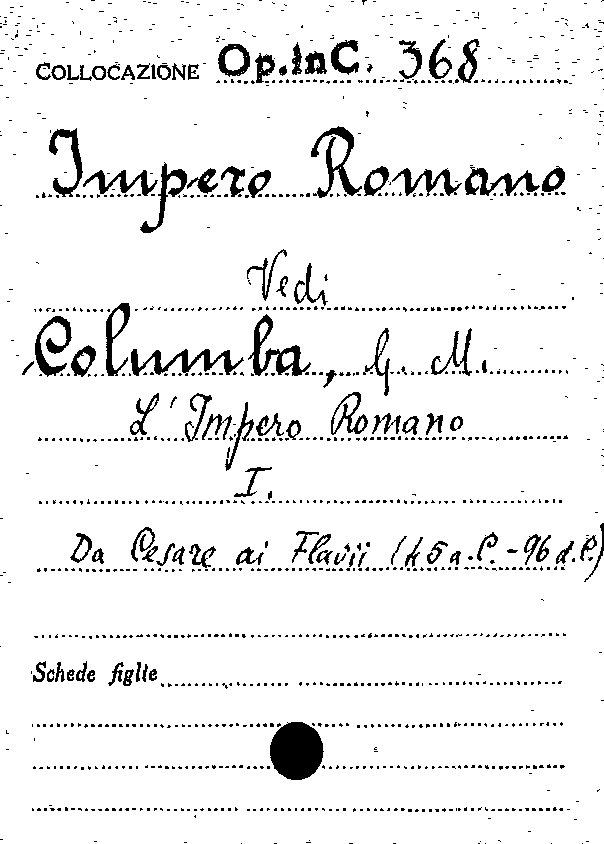 COLLOCAZIONE Op.InC. 368
Impero Romano
Vedi
Columba, G. M.
L'Impero Romano
I.
Da Cesare ai Flavii (45 a.C.-96 d.C.)
Schede figlie